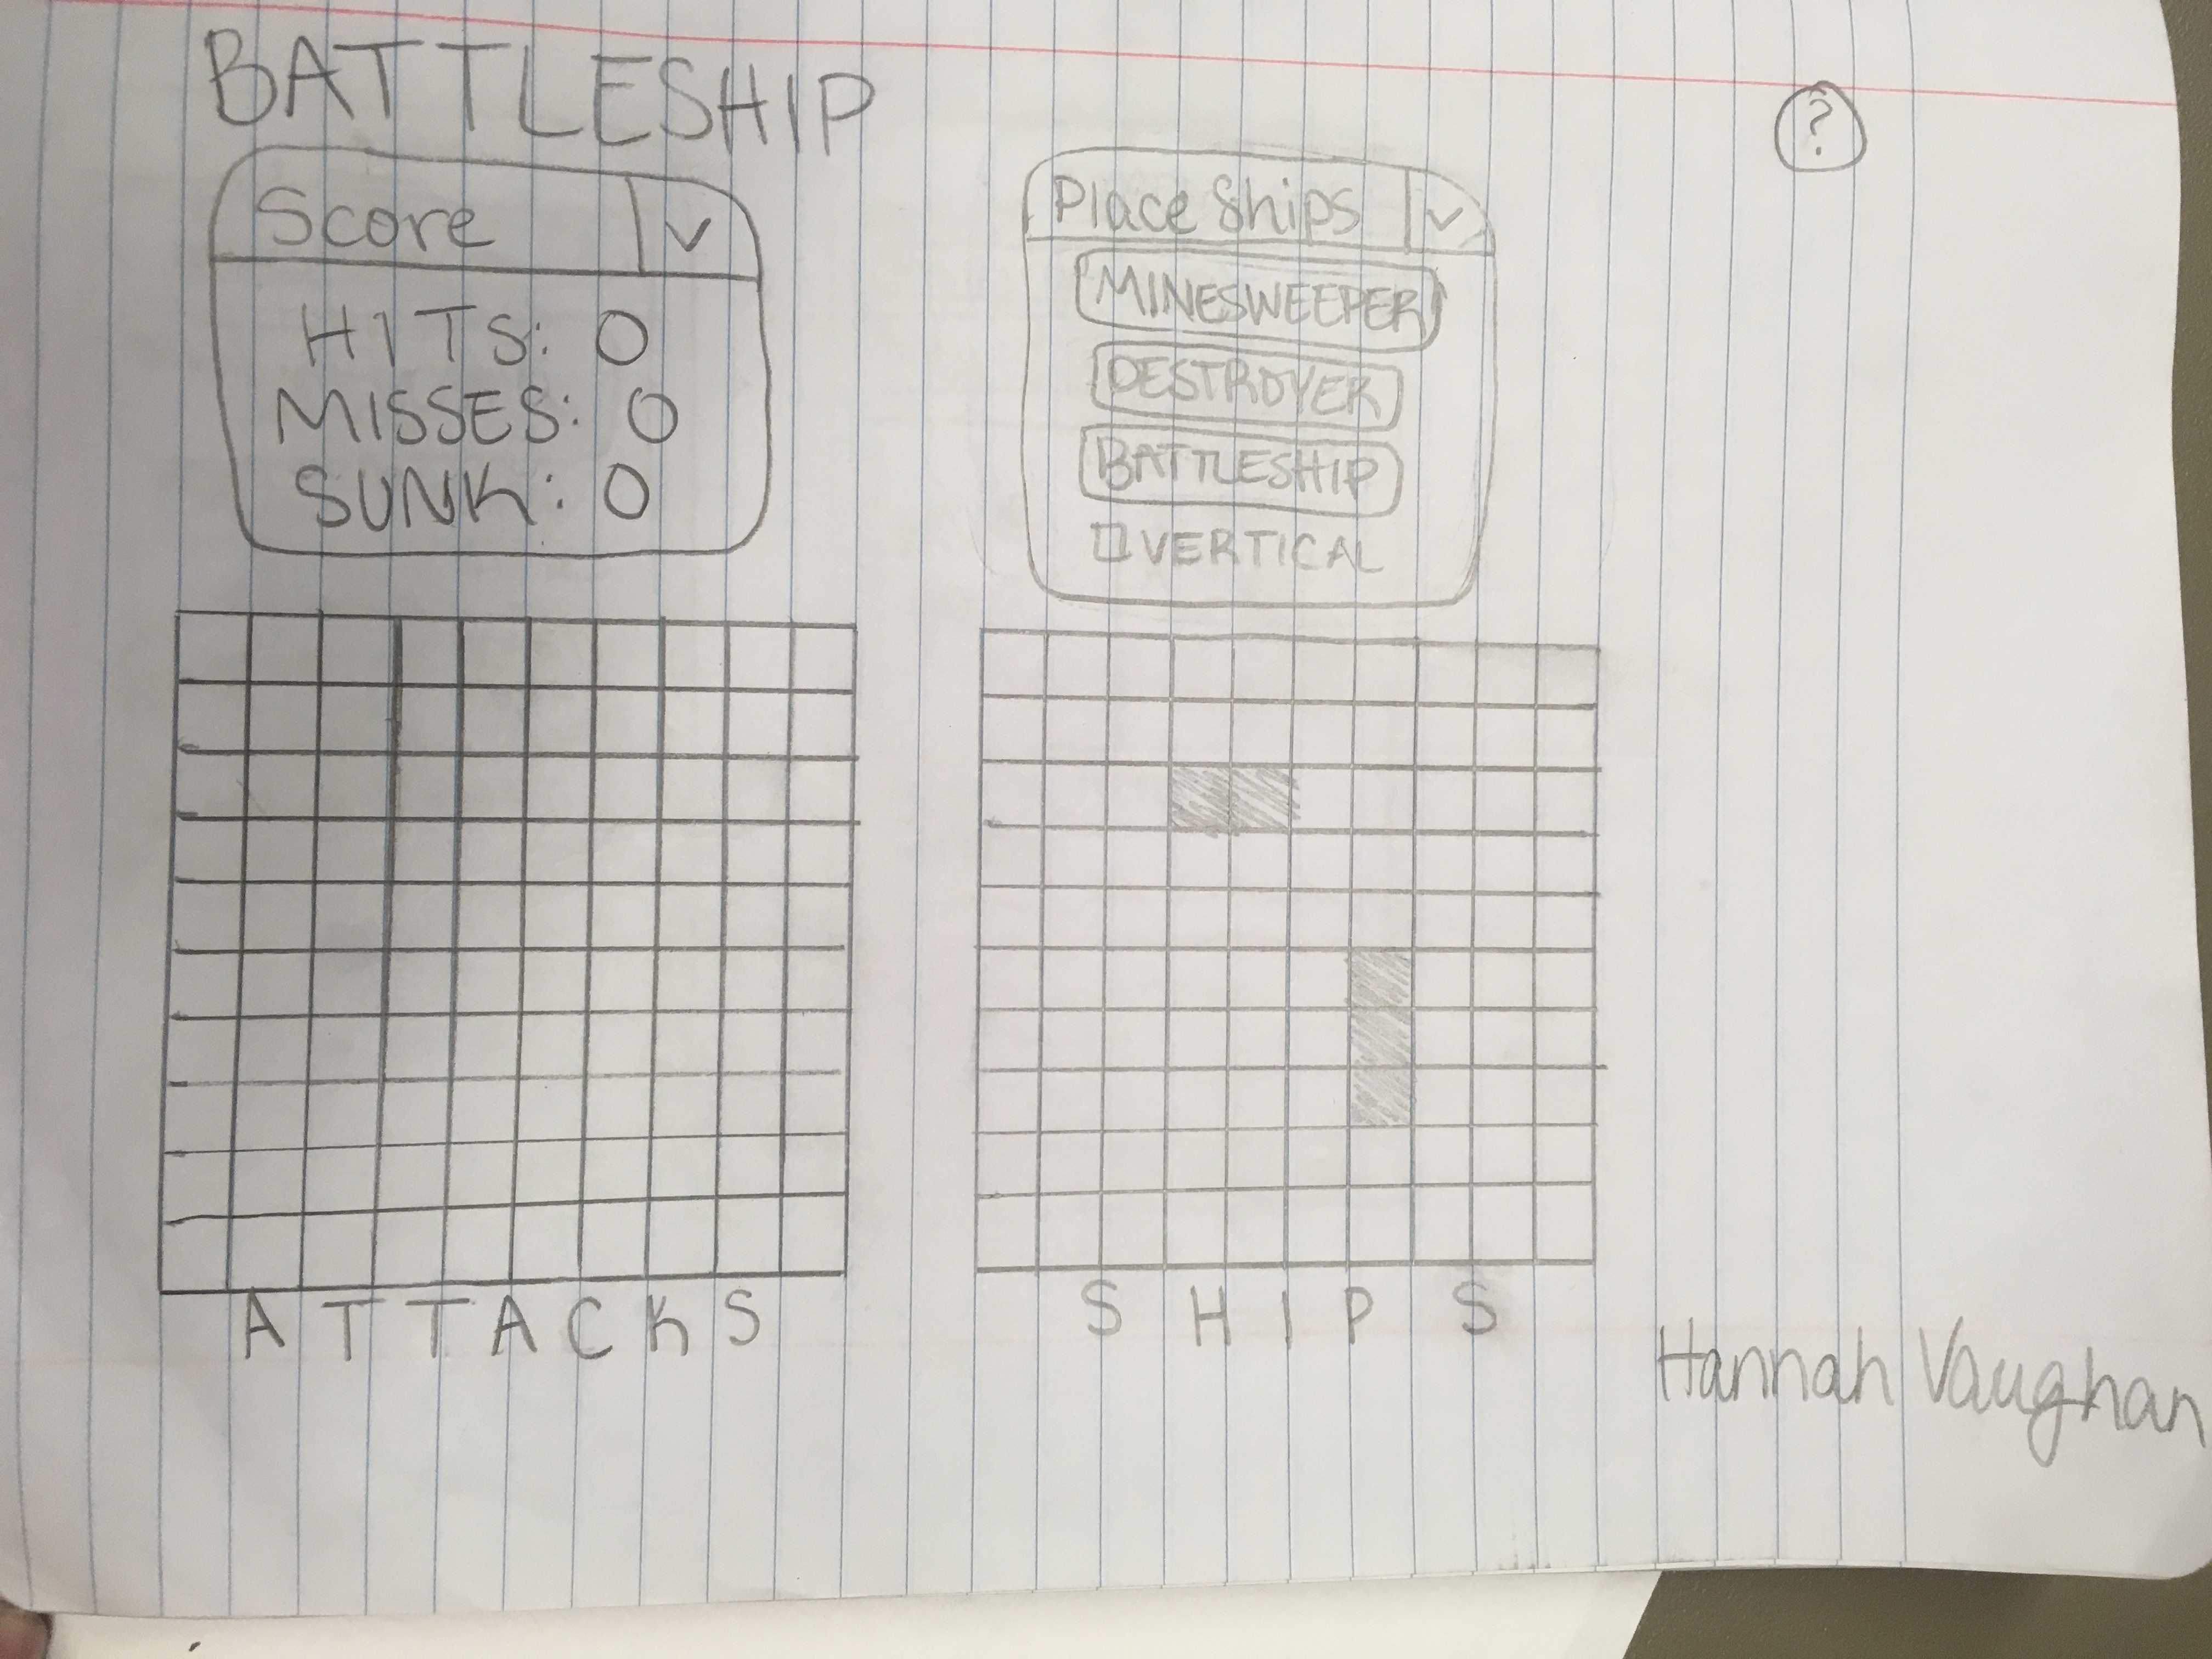 BATTLESHIP
?
Score
HITS: 0
MISSES: 0
SUNK: 0
Place Ships
MINESWEEPER
DESTROYER
BATTLESHIP
VERTICAL
ATTACKS
SHIPS
Hannah Vaughan